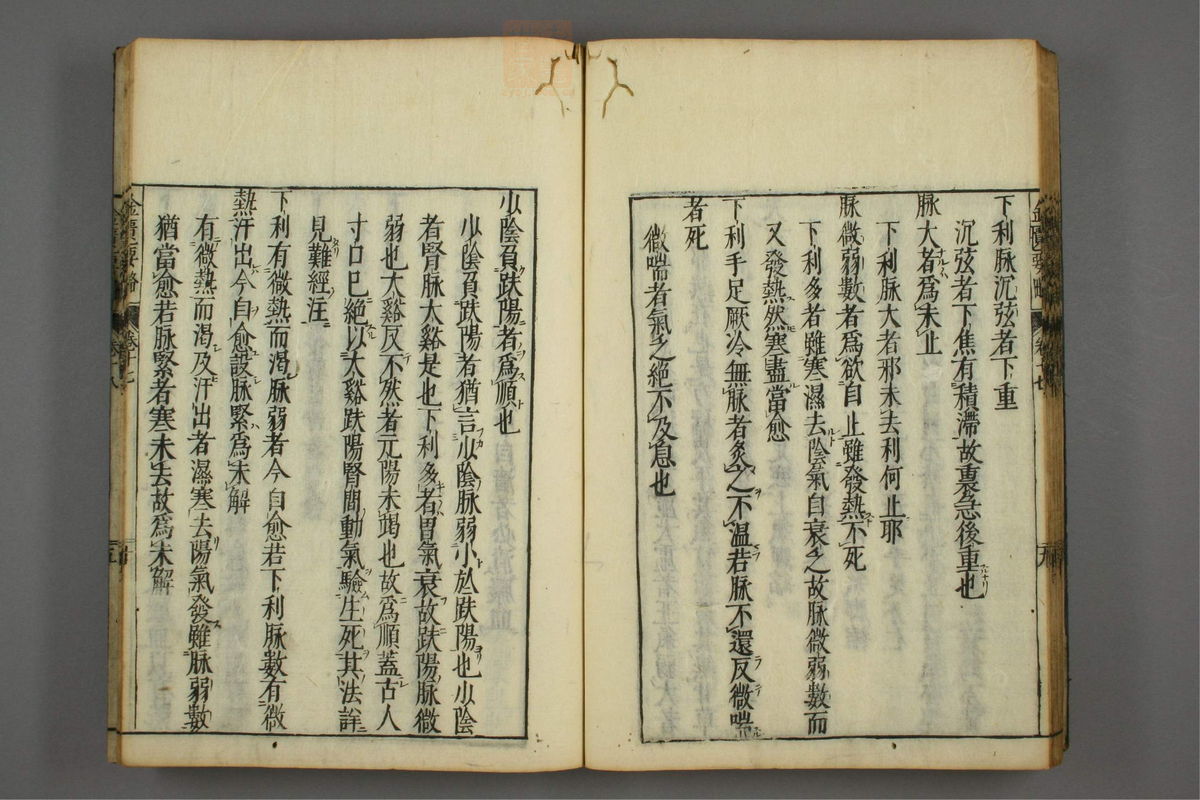 下利脉沉弦者下重
沉弦者下焦有積滯故裏急後重也
脉大者爲未止
下利脉大者邪未去利何止耶
脉微弱數者爲欲自止雖發熱不死
下利多者雖寒濕去陰氣自衰之故脉微弱數而
又發熱然寒盡當愈
下利手足厥冷無脉者灸之不温若脉不還反微喘
者死
微喘者氣之絶不及息也
少陰負趺陽者爲順也
少陰負趺陽者猶言少陰脉弱小於趺陽也少陰
者腎脉太谿是也下利多者胃氣衰故趺陽脉微
弱也太谿反不然者元陽未竭也故爲順蓋古人
寸口已絶以太谿趺陽腎間動氣驗生死其法詳
見難經注
下利有微熱而渴脉弱者今自愈若下利脉數有微
熱汗出今自愈設脉緊爲未解
有微熱而渴及汗出者濕寒去陽氣發雖脉弱數
猶當愈若脉緊者寒未去故爲未解